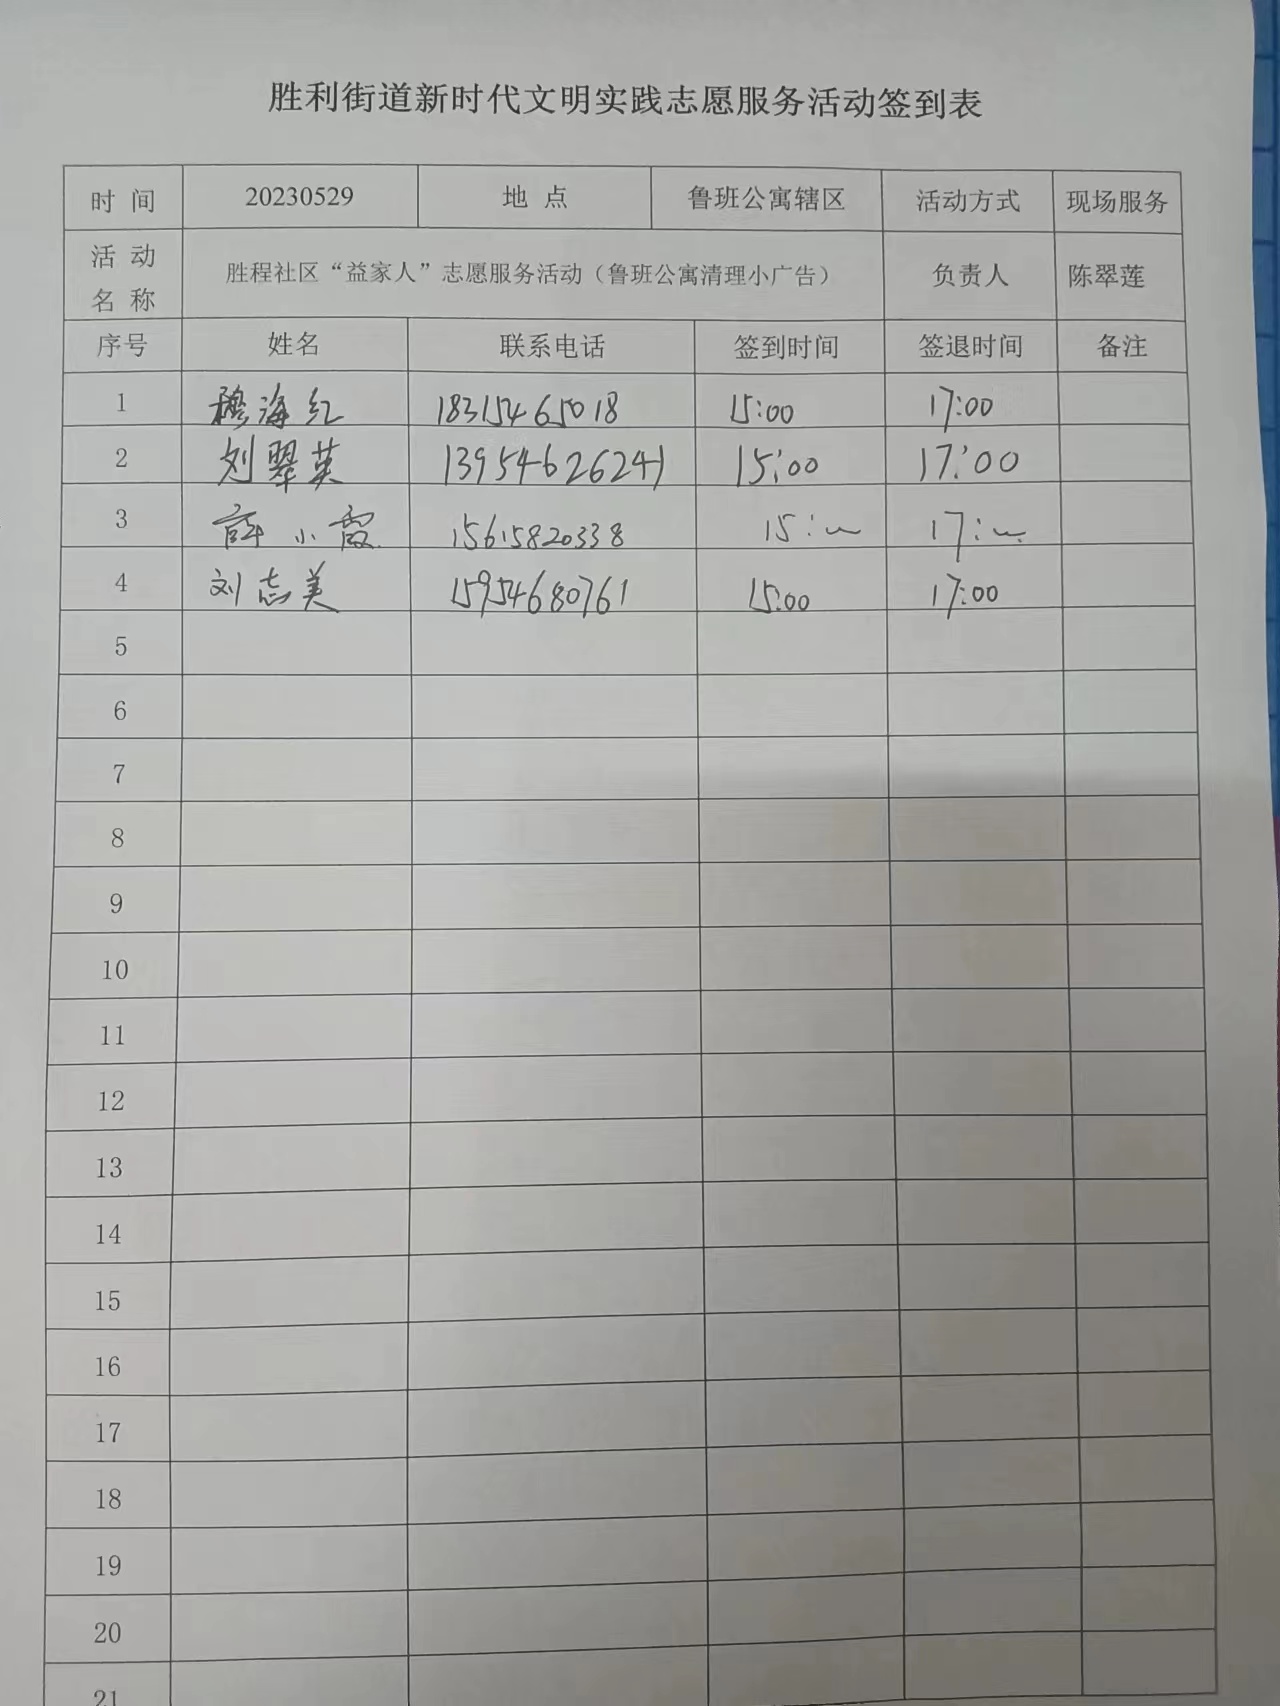 胜利街道新时代文明实践志愿服务活动签到表
时 间 20230529 地 点 鲁班公寓辖区 活动方式 现场服务
活 动 名 称 胜程社区“益家人”志愿服务活动（鲁班公寓清理小广告） 负责人 陈翠莲
序号 姓名 联系电话 签到时间 签退时间 备注
1 穆海红 18315465018 15:00 17:00
2 刘翠英 13954626241 15:00 17:00
3 薛小霞 15615820338 15: 17:
4 刘志美 15954680761 15:00 17:00
5
6
7
8
9
10
11
12
13
14
15
16
17
18
19
20
21